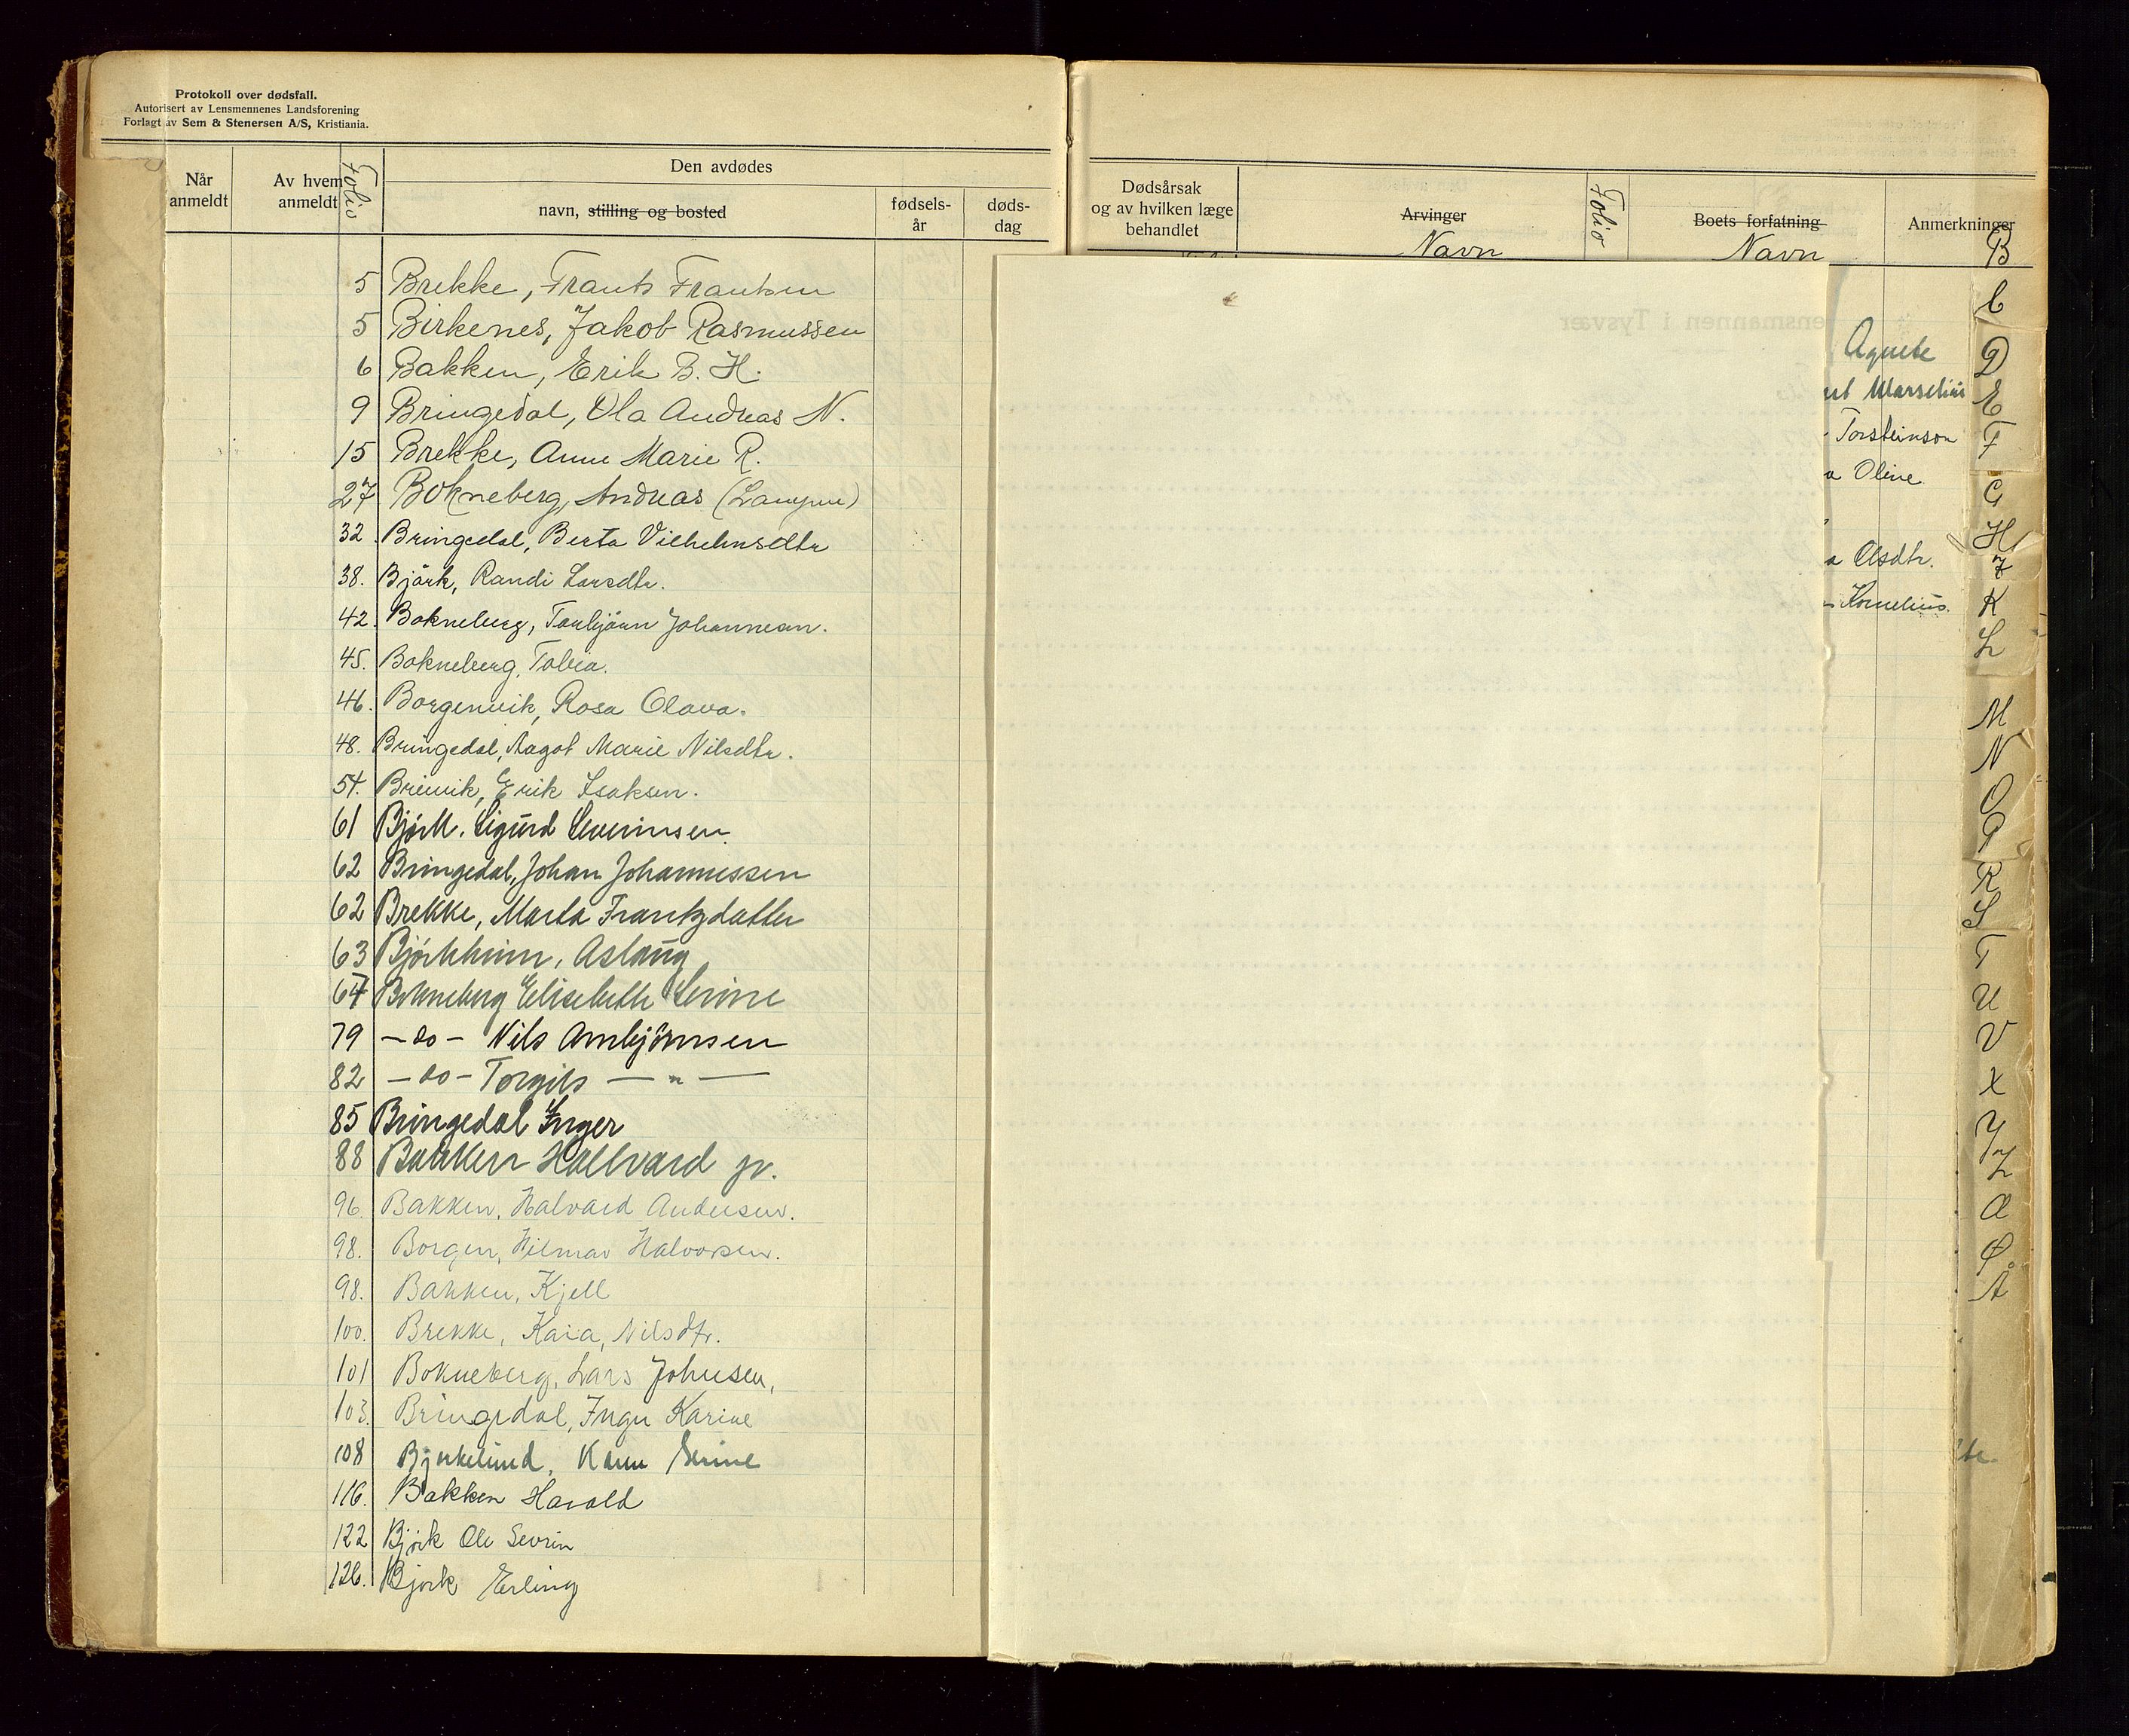 Protokoll over dødsfall.
Autorisert av Lensmennenes Landsforening
Forlagt av Sem & Stenersen A/S, Kristiania.
Når anmeldt
Av hvem anmeldt
Folio
Den avdødes
navn, stilling og bosted
fødsels-år
døds-dag
5 Brekke, Frants Frantsen
5 Birkenes, Jakob Rasmussen
6 Bakken, Erik B. H.
9 Bringedal, Ola Andreas N.
15 Brekke, Anne Marie R.
27 Bokneberg, Andreas
32. Bringedal, Berta Vilhelmsdtr
38. Björk, Randi Larsdtr.
42. Bokneberg, Torbjörn Johannesen.
45. Bokneberg, Tobia.
46. Borgenvik, Rosa Olava.
48. Bringedal, Aagot Marie Nilsdtr.
54. Breivik, Erik Isaksen.
61 Björk. Sigurd Severinsen.
62 Bringedal, Johan Johannessen
62 Brekke, Marta Frantzdatter
63 Björkheim, Aslaug
64 Bokneberg Elisebeth Serine
79 – do – Nils Arnbjörnsen
82 – do – Torgils — " —
85 Bringedal Inger
88 Bakken Hallvard jr.
96. Bakken, Halvard Andersen.
98. Borgen, Hilmar Halvorsen.
98. Bakken, Kjell
100. Brekke, Kaia, Nilsdtr.
101 Bokneberg, Lars Johnsen,
103. Bringedal, Inger Karine
108 Bjerkelund, Karen Serine
116. Bakken Harald
122 Björk Ole Sevrin
126. Bjørk Erling
Dødsårsak
og av hvilken læge
behandlet
Arvinger
Navn
Folio
Boets forfatning
Navn
Anmerkninger
ensmannen i Tysvær
Agnete
Marselius
Torsteinson
Oline
Olsdtr.
Kornelius.
B
C
D
E
F
G
H
I
K
L
M
N
O
P
R
S
T
U
V
X
Y
Z
Æ
Ø
Å